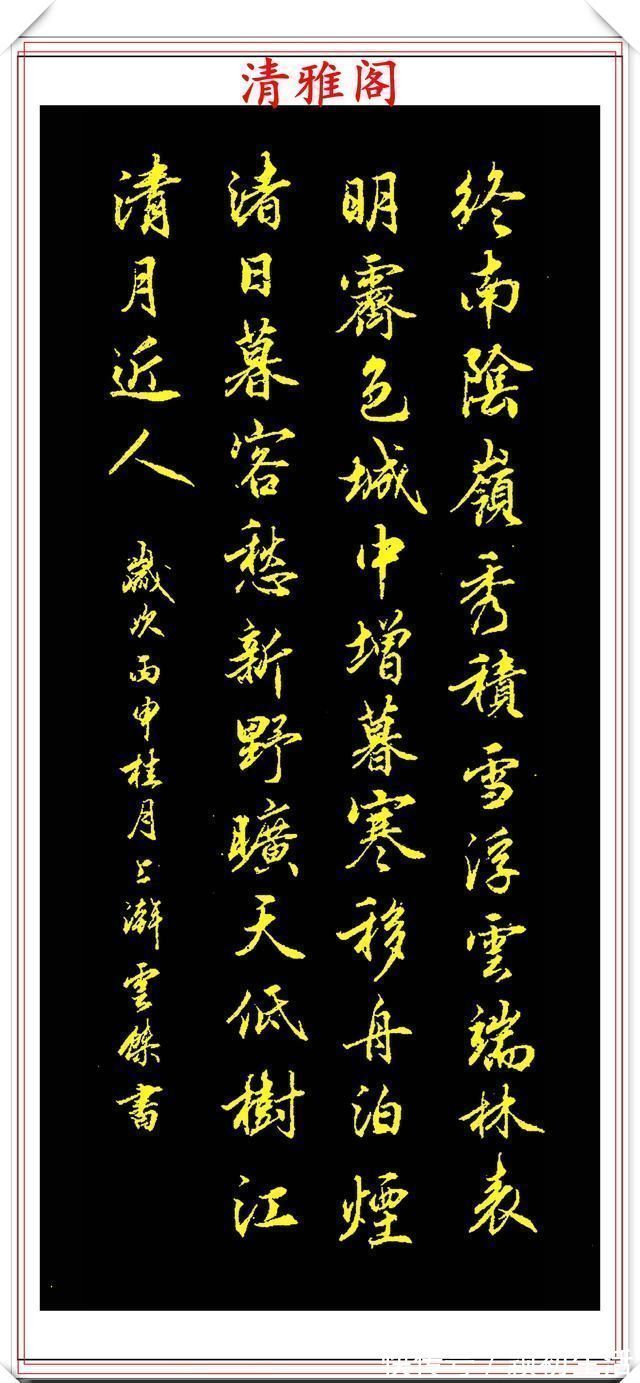 清雅阁
终南陰嶺秀積雪浮雲端林表
明霽色城中增暮寒移舟泊煙
渚日暮客愁新野曠天低樹江
清月近人
歲次丙申桂月上澣雲傑書